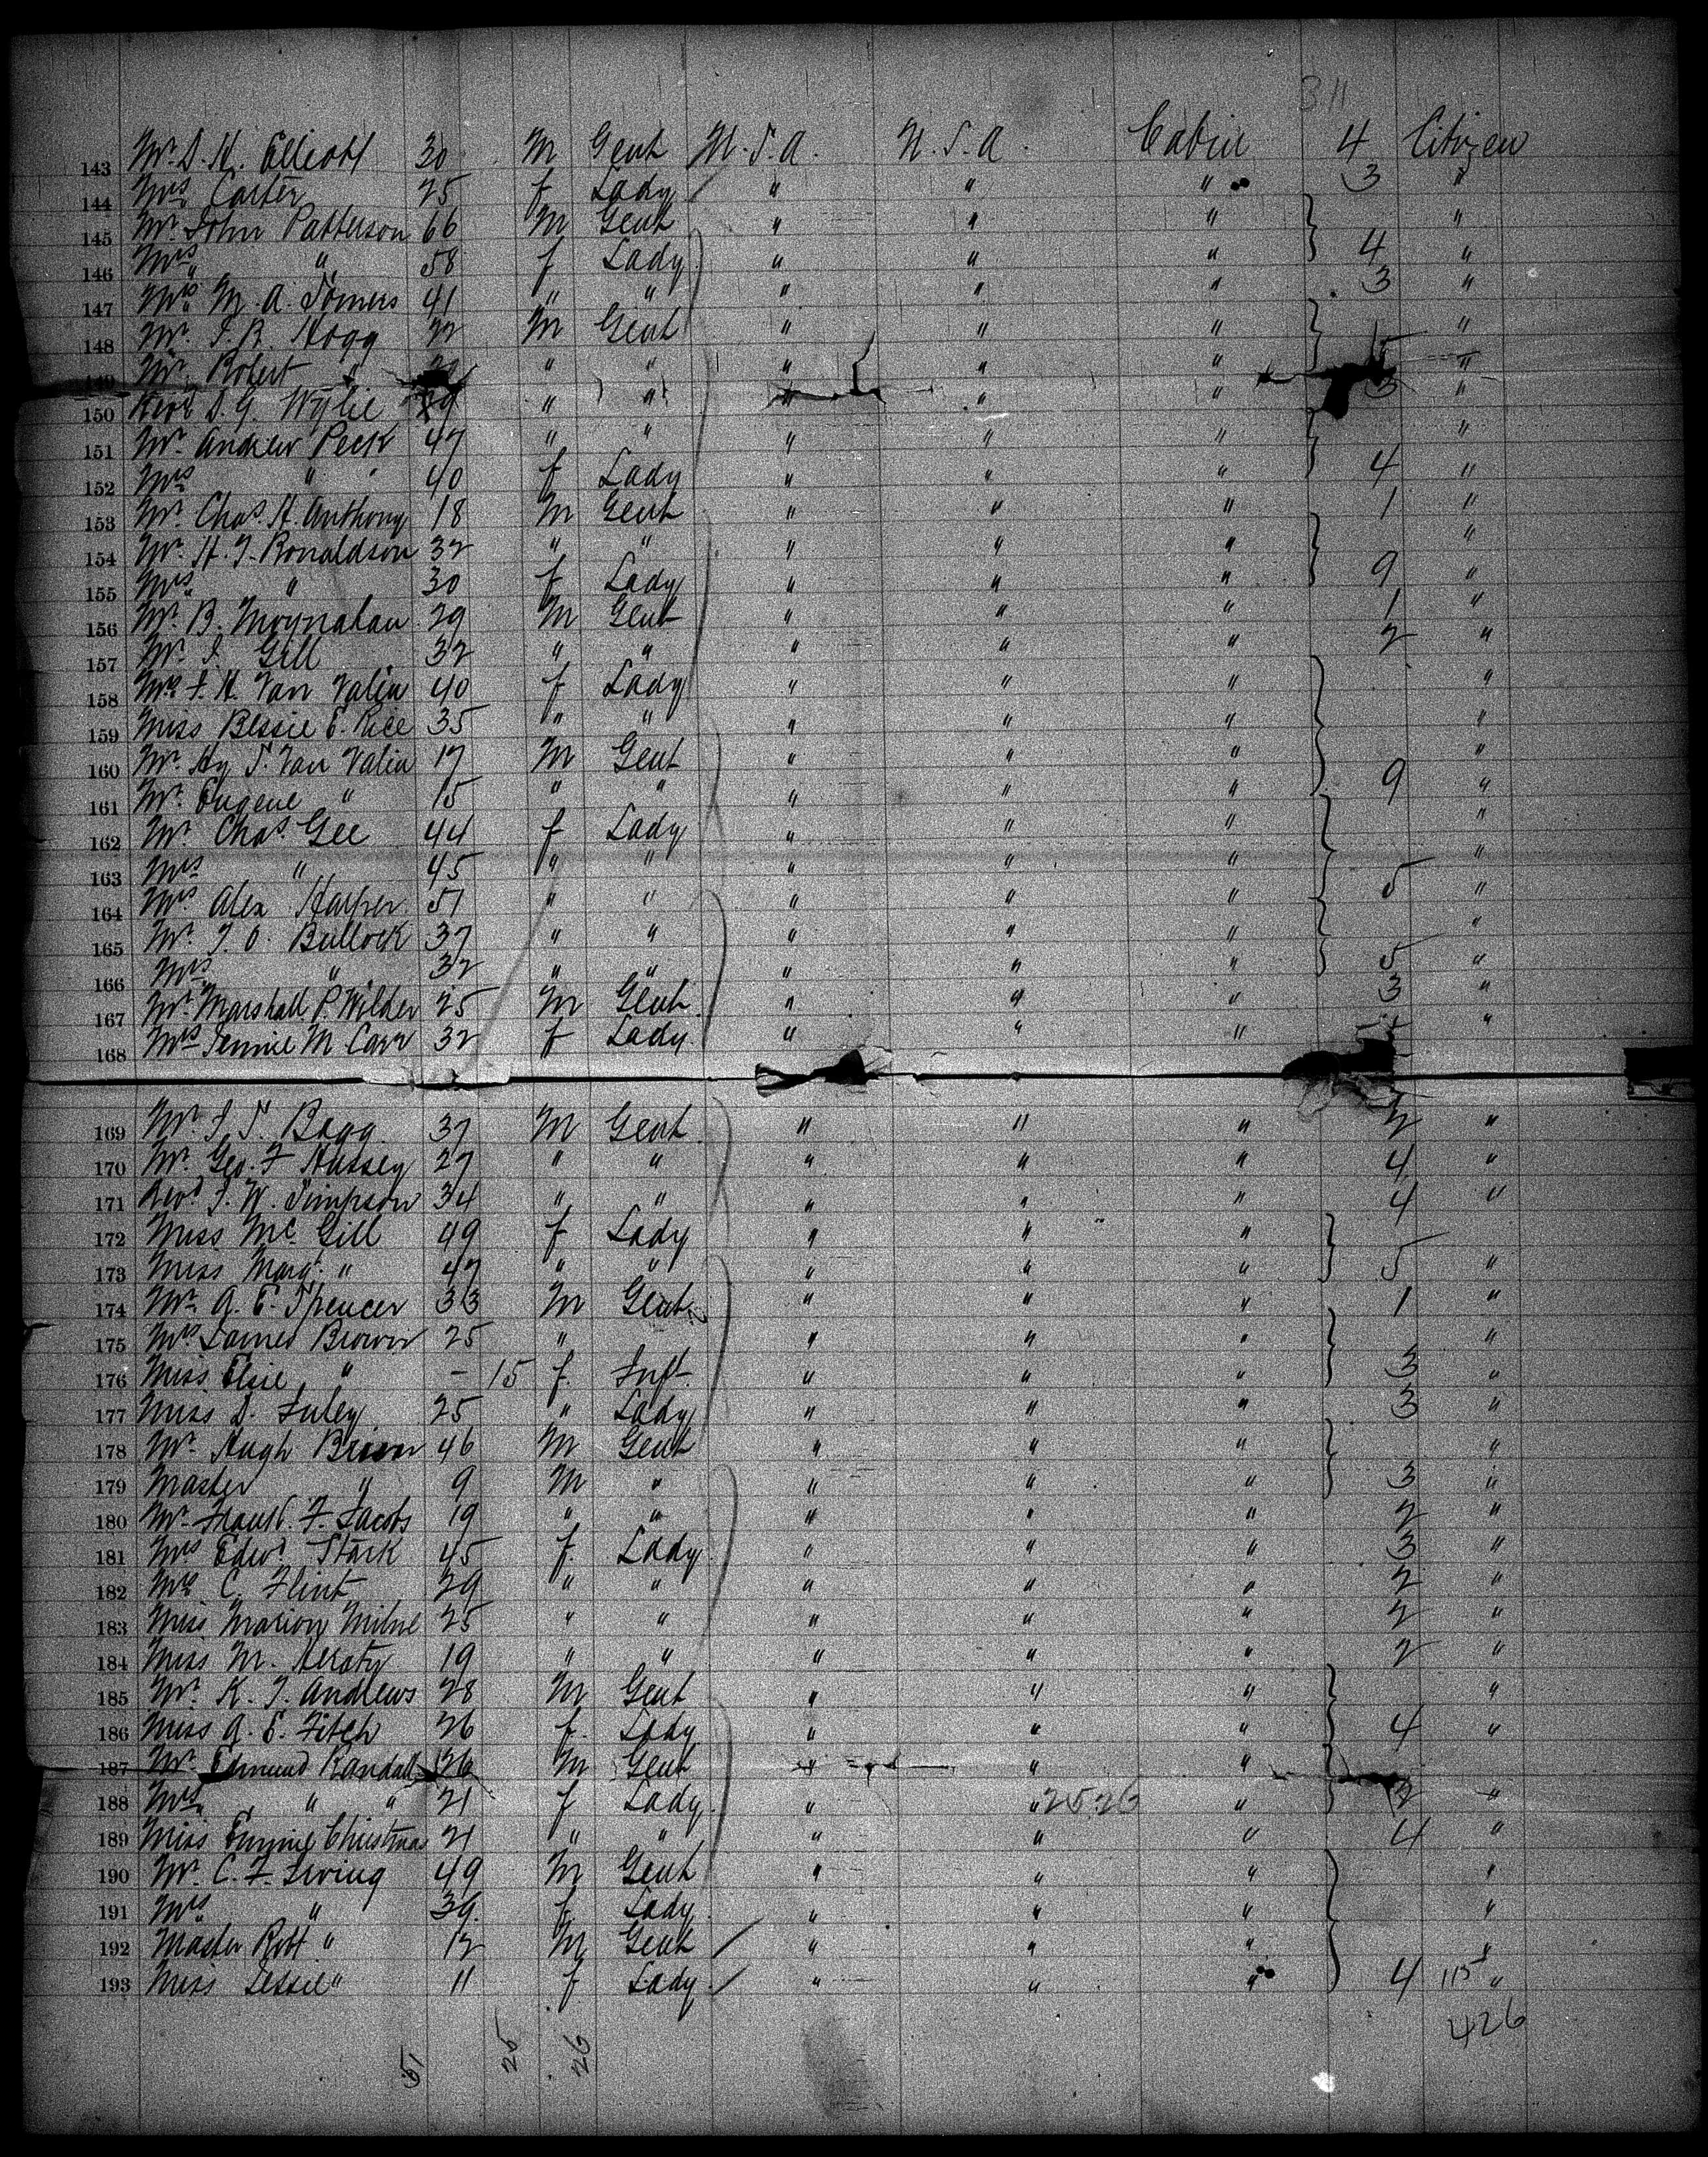 311
143 Mr. D. H. Elliott 30 M Gent U.S.A. U.S.A. Cabin 4 Citizen
144 Mrs Carter 25 f Lady " " " 3 "
145 Mr. John Patterson 66 M Gent " " " "
146 Mrs " 58 f Lady " " " 4 "
147 Mrs M. A. Somers 41 " " " " " 3 "
148 Mr. J. B. Hogg 22 M Gent " " " "
149 Mr. Robert " " " " " " "
150 Revd D. G. Wylie 29 " " " " " 3 "
151 Mr. Andrew Peck 47 " " " " " "
152 Mrs " 40 f Lady " " " 4 "
153 Mr. Chas. H. Anthony 18 M Gent " " " 1 "
154 Mr. H. T. Ronaldson 32 " " " " " "
155 Mrs " 30 f Lady " " " 9 "
156 Mr. B. Moynahan 29 M Gent " " " 1 "
157 Mr. J. Gill 32 " " " " " 2 "
158 Mrs J. H. Van Valin 40 f Lady " " " "
159 Miss Bessie E. Rice 35 " " " " " "
160 Mr. Hy S. Van Valin 17 M Gent " " " 9 "
161 Mr. Eugene " 15 " " " " " "
162 Mr. Chas. Gee 44 f Lady " " " "
163 Mrs " 45 " " " " " "
164 Mrs Alex Harper 51 " " " " " 5 "
165 Mr. T. O. Bullock 37 " " " " " "
166 Mrs " 32 " " " " " 5 "
167 Mr. Marshall P. Wilder 25 M Gent " " " 3 "
168 Mrs Jennie M. Carr 32 f Lady " " " "
169 Mr. J. T. Bagg 37 M Gent " " " 2 "
170 Mr. Geo. F Hussey 27 " " " " " 4 "
171 Revd J. W. Simpson 34 " " " " " 4 "
172 Miss Mc Gill 49 f Lady " " "
173 Miss Margt. " 47 " " " " " 5 "
174 Mr. A. E. Spencer 33 M Gent " " " 1 "
175 Mrs James Brown 25 " " " " "
176 Miss Elsie " - 15 f. Inft. " " " 3 "
177 Miss D. Luley 25 " Lady " " " 3 "
178 Mr. Hugh Brown 46 M Gent " " " "
179 Master " 9 M " " " " 3 "
180 Mr. Frank. F. Jacobs 19 " " " " " 2 "
181 Mrs Edwd. Stark 45 f. Lady " " " 3 "
182 Mrs C. Flint 29 " " " " " 2 "
183 Miss Marion Milne 25 " " " " " 2 "
184 Miss M. 19 " " " " " 2 "
185 Mr. K. T. Andrews 28 M Gent " " " "
186 Miss A. E. Fitch 26 f. Lady " " " 4 "
187 Mr. Edmund Randall 26 M Gent " " "
188 Mrs " " 21 f Lady " " 25 26 " 2 "
189 Miss Fannie Christmas 21 " " " " " 4 "
190 Mr. C. F. Irving 49 M Gent " " " "
191 Mrs " 39. f Lady " " " "
192 Master Robt " 12 M Gent " " " "
193 Miss Jessie " 11 f Lady " " " 4 115 "
426
51 25 26